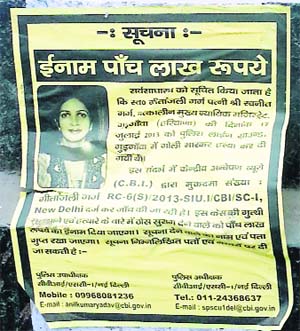 -: सूचना :-
ईनाम पाँच लाख रूपये
सर्वसाधारण को सूचित किया जाता है
कि स्व० गीतांजली गर्ग पत्नी श्री रवनीत
गर्ग, तत्कालीन मुख्य न्यायिक
गुड़गाँव (हरियाणा) की दिनांक 17
जुलाई 2013 को पुलिस लाईन
गुड़गाँव में गोली मारकर हत्या कर दी
गयी थी।
इस संदर्भ में केन्द्रीय अन्वेषण ब्यूरो
(C.B.I.) द्वारा मुकदमा संख्या :
RC-6(S)/2013-SIU.I/CBI/SC-I,
New Delhi दर्ज कर जाँच की जा रही है। इस केस की गुत्थी
सुलझाने एवं हत्यार के बारे में ठोस सुराग देने वाले को पाँच लाख
रूपये का ईनाम दिया जाएगा। सूचना देने वाले का नाम एवं पता
गुप्त रखा जाएगा। सूचना निम्नलिखित पतों एवं पर दी
जा सकती है :-
पुलिस उपाधीक्षक
सीबीआई/एससी-1/नई दिल्ली
Mobile : 09968081236
E-mail : anilkumaryadav@cbi.gov.in
पुलिस अधीक्षक
सीबीआई/एससी-1/नई दिल्ली
Tel.: 011-24368637
E-mail : spscu1del@cbi.gov.in